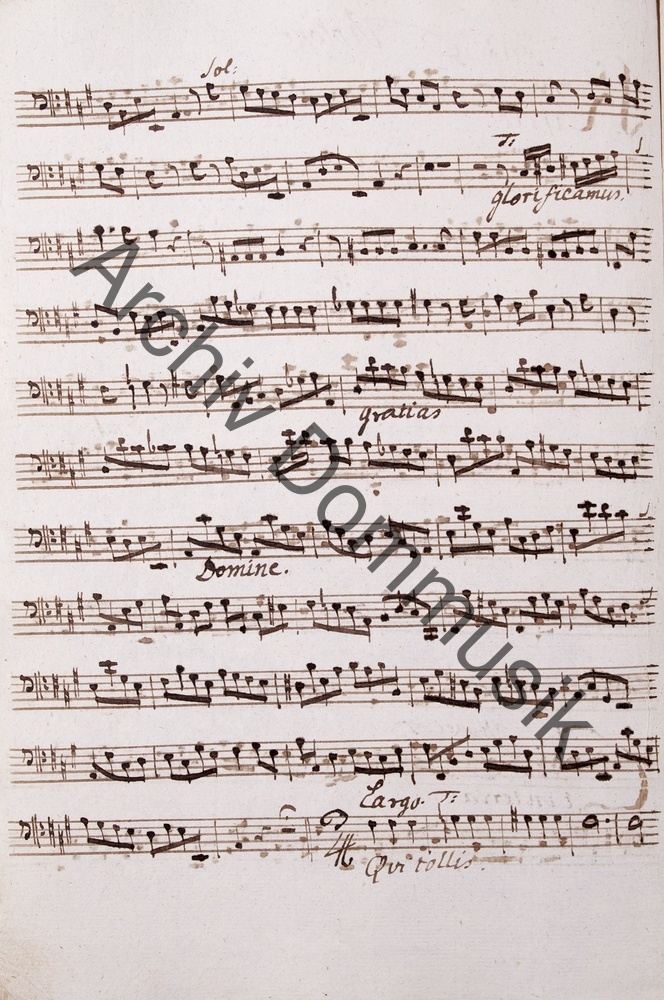 Sol:
T:
glorificamus.
gratias
Domine.
Largo. T:
Qui tollis.
Archiv Dommusik